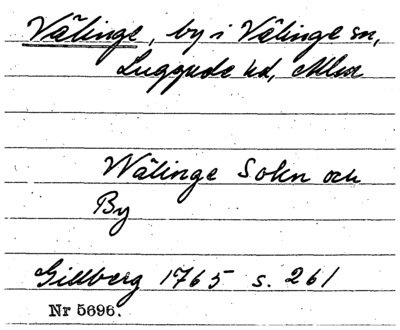 Välinge, by i Välinge sn,
Luggude hd, Mlm
Wälinge Sokn och
By
Gillberg 1765 s. 261
Nr 5696.